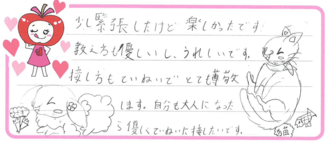 少し緊張したけど 楽しかったです。
教え方も優しいし、うれしいです。
接し方もていねいで とても尊敬
します。自分も大人になった
ら優しくていねいな接したいです。